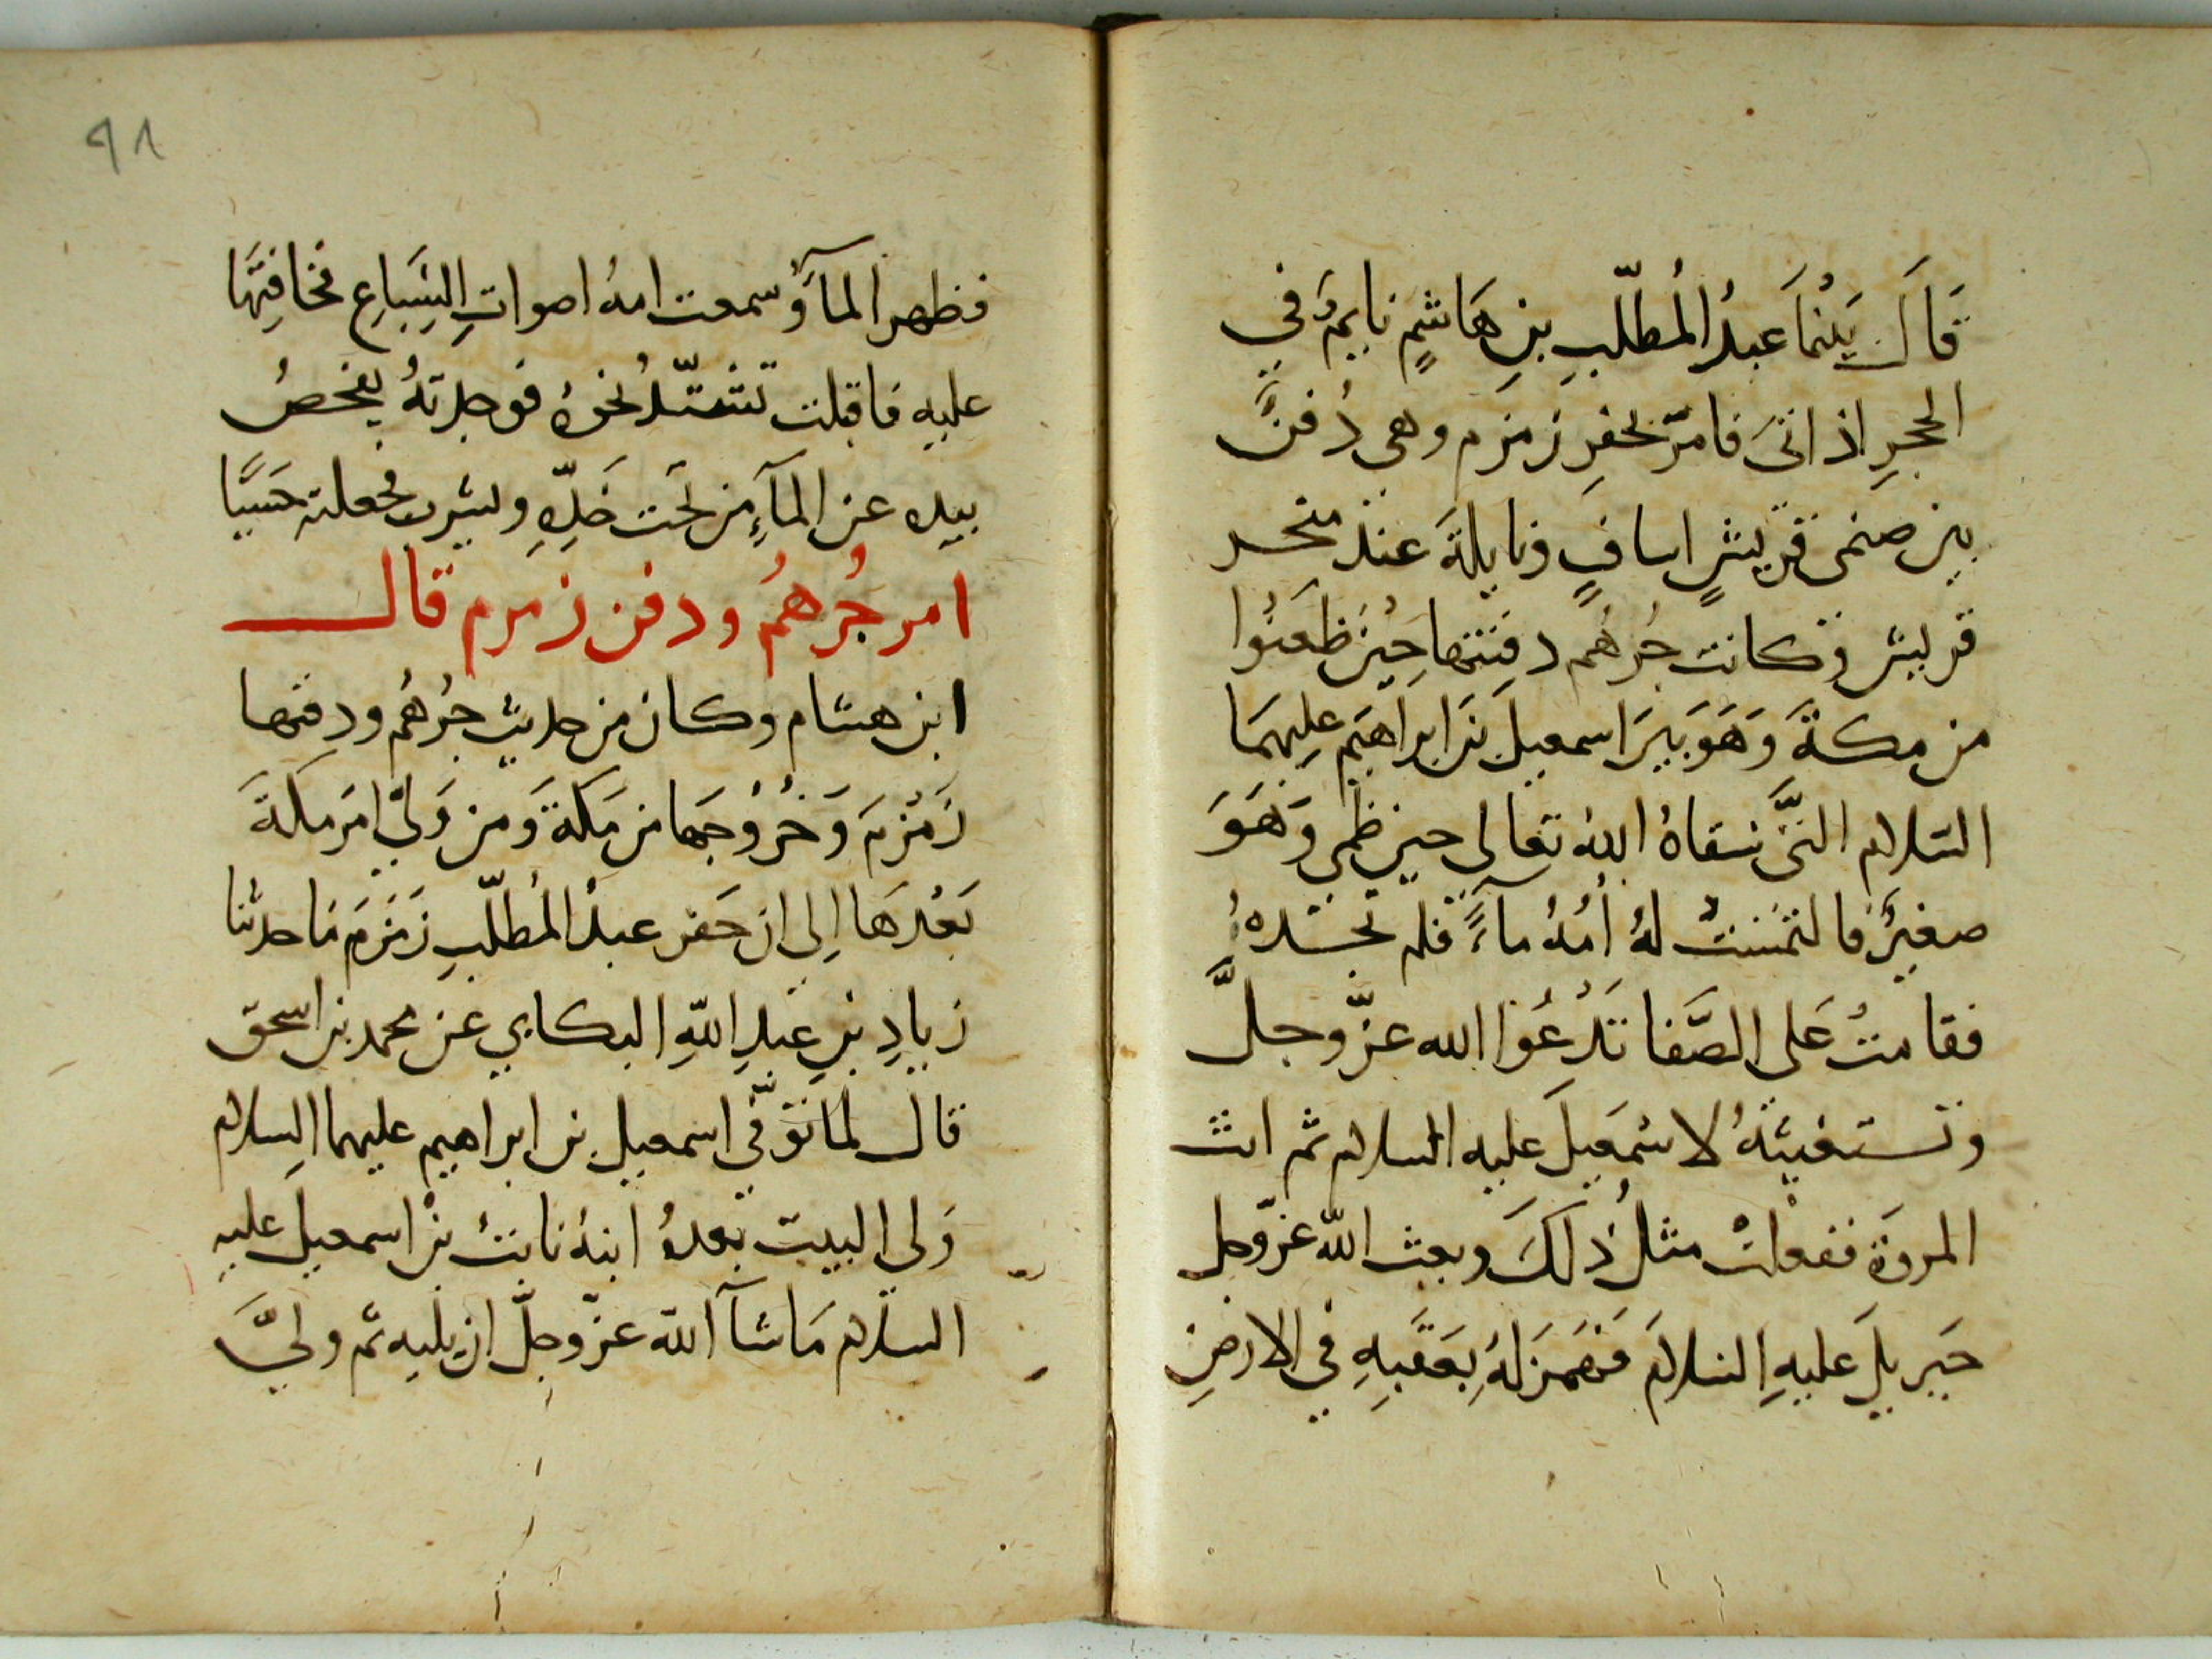 قَالَ بَيْنَمَا عَبدُ المُطّلبِ بنِ هَاشِمٍ نايمٌ في
الحجرِ اذ اتىَ فامرَ بحفرِ زمزم وهى دُفنٌ
بين صنمى قريشٍ اسافٍ ونايلةَ عند منحر
قريش وكانت جُرهُم دفنتها حِينَ ظَعَنُوا
من مكةَ وَهَىَ بيرَ اسمعيلَ بنَ ابراهَيم عليهمَا
السّلام التىَّ سقاهُ اللهُ تعالى حين ظمى وَهَوَ
صغيرٌ فالتمَستْ لهُ أمُهُ ماءً فلم تجدهُ
فقامتْ عَلى الصَّفا تَدْعُوا الله عزّ وجلَّ
وتستغيثهُ لاسْمَعيلَ عليه السلام ثم اتت
المروَة ففعلتْ مثلُ ذلكَ وبعث اللّه عزّوجل
جَبريلَ عليهِ السلامَ فَهَمَزَ لهُ بِعَقَبهِ في الارضِ
٩٨
فظهر المآءُ وسمعت امهُ اصواتِ السِبَاعِ فخافتهَا
عليه فاقبلت تشتدُّ نحوهُ فوجدتهُ يفحصُ
بيدِه عن المآءِ من تحَت خَدِّهِ ويشرب فجعلته حَسَيًا
امر جُرهُم ودفن زمزم قال
ابن هشام وكان من حديث جُرهُم ودفنها
زَمْزمَ وَخُرُوْجَها من مَكةَ وَمن وَلىَّ امَر مكةَ
بَعْدَهَا اِلى ان حَفر عبدُ المُطّلبِ زَمَزَم مَا حدثنا
زيادِ بنِ عَبدِ اللّهِ البكايي عن محمد بن اسحق
قال لما توّفّي اسمعيل بن ابراهيم عليهما السلام
وَلى البيت بعدهُ ابنهُ نابتْ بنْ اسمعيلَ عليهِ
السلام مَا شآ اللّه عزّ وجلّ ان يليه ثم وليَّ